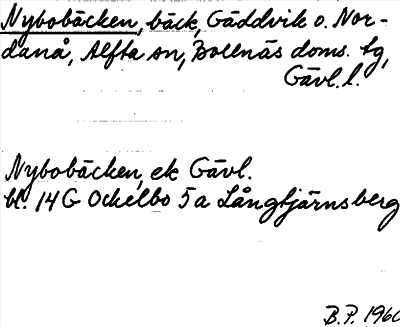 Nybobäcken, bäck, Gäddvik o. Nor-
danå, Alfta sn, Bollnäs doms. tg,
Gävl. l.
Nybobäcken, ek Gävl.
bl. 14G Ockelbo 5a Långtjärnsberg
B.P. 1960